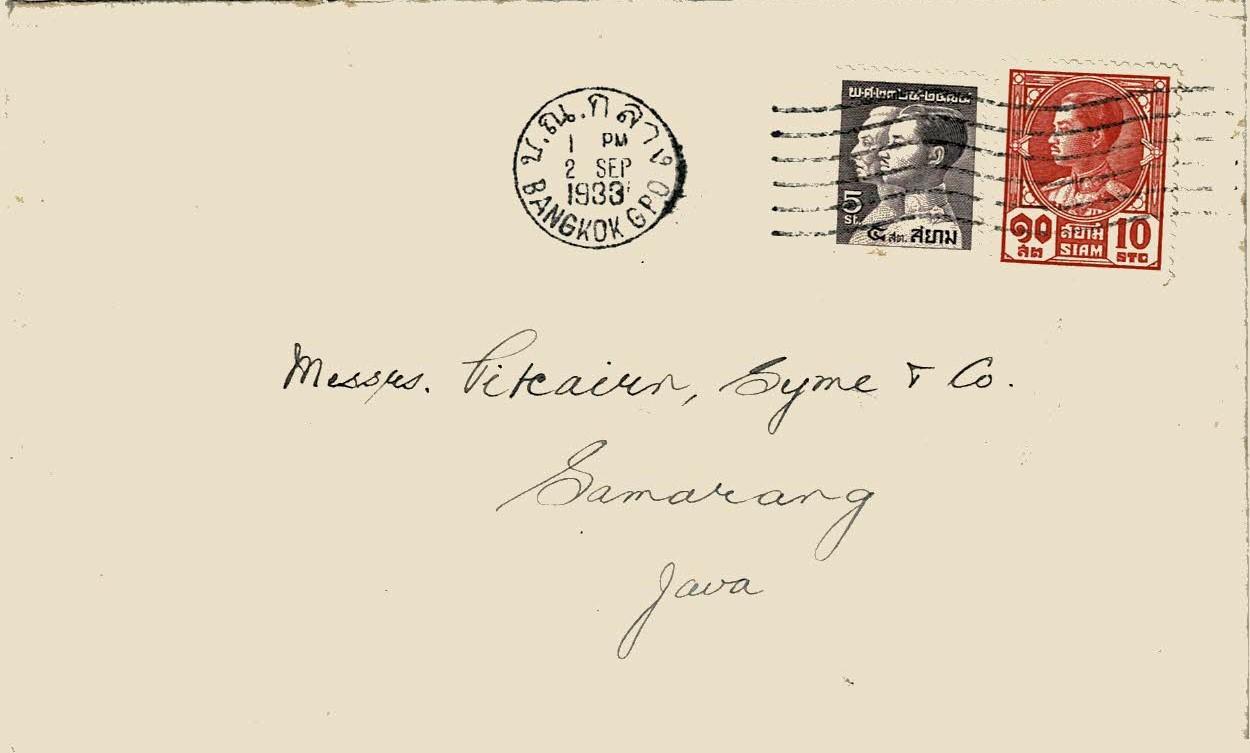 ป.ณ.กลาง
1 PM
2 SEP
1933
BANGKOK GPO
พ.ศ.๒๓๒๕-๒๔๗๔
5
St.
๕ สต. สยาม
๑๐ สยาม 10
สต SIAM STG
Messrs. Pitcairn, Syme & Co.
Samarang
Java